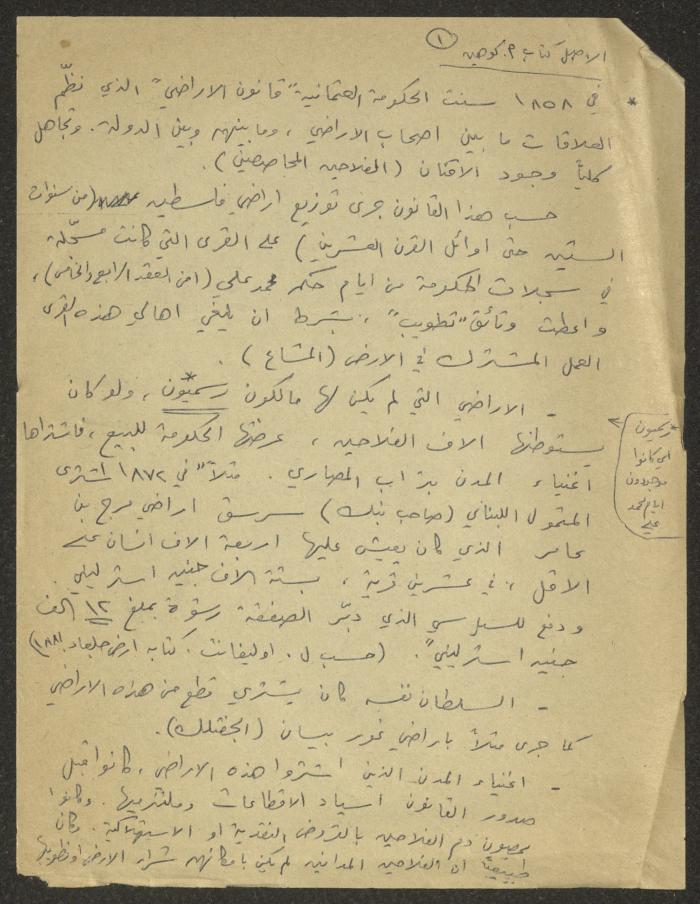 ١
الاصل كتاب م. كوهين
* في ١٨٥٨ سنت الحكومة العثمانية "قانون الاراضي" الذي نظّم
العلاقات ما بين اصحاب الاراضي، وما بينهم وبين الدولة. وتجاهل
كلياً وجود الاقنان (الفلاحين المحاصصين).
حسب هذا القانون جرى توزيع اراضي فلسطين (من سنوات
الستين حتى اوائل القرن العشرين) على القرى التي كانت مسجّلة
في سجلات الحكومة من ايام حكم محمد علي (من العقد الرابع والخامس)،
واعطت وثائق "تطويب"، بشرط ان يلغي اهالي هذه القرى
العمل المشترك في الارض (المشاع).
- الاراضي التي لم يكن لها مالكون رسميّون*، ولو كان
يستوطنها الاف الفلاحين، عرضتها الحكومة للبيع، فاشتراها
اغنياء المدن بتراب المصاري. مثلاً في ١٨٧٢ اشترى
المتمول اللبناني (صاحب بنك) سرسق اراضي مرج بن
عامر الذي كان يعيش عليها اربعة الاف انسان على
الاقل، في عشرين قرية، بستة الاف جنيه استرليني.
ودفع للسياسي الذي دبّر الصفقة رشوة بمبلغ ١٢ الف
جنيه استرليني. (حسب ل. اوليفانت. كتابه ارض جلعاد ١٨٨١)
- السلطان نفسه كان يشتري قطع من هذه الاراضي
كما جرى مثلاً باراضي غور بيسان (الجفتلك).
- اغنياء المدن الذين اشتروا هذه الاراضي، كانوا قبل
صدور القانون اسياد الاقطاعات وملتزميها. وكانوا
يمصون دم الفلاحين بالقروض النقدية او الاستهلاكية. وكان
طبيعياً ان الفلاحين المدانين لم يكن بامكانهم شراء الارض او تطويبها
رسميون
اي كانوا
موجودون
ايام محمد
علي